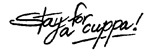 Stay for
a cuppa!